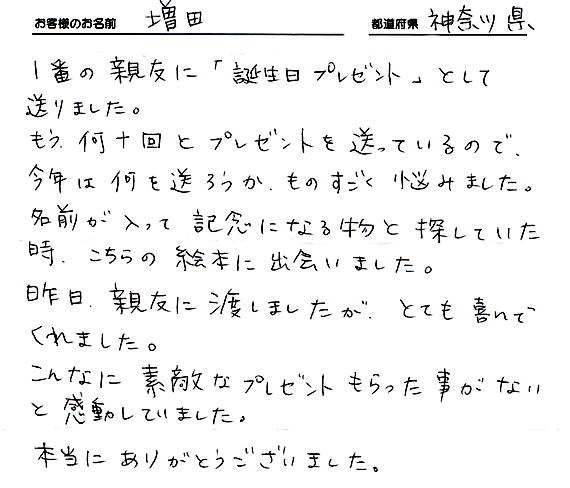 お客様のお名前 増田 都道府県 神奈川県、
1番の親友に「誕生日プレゼント」として
送りました。
もう、何十回とプレゼントを送っているので、
今年は何を送ろうか、ものすごく悩みました。
名前が入って記念になる物と探していた
時、こちらの絵本に出会いました。
昨日、親友に渡しましたが、とても喜んで
くれました。
こんなに素敵なプレゼントもらった事がない
と感動していました。
本当にありがとうございました。